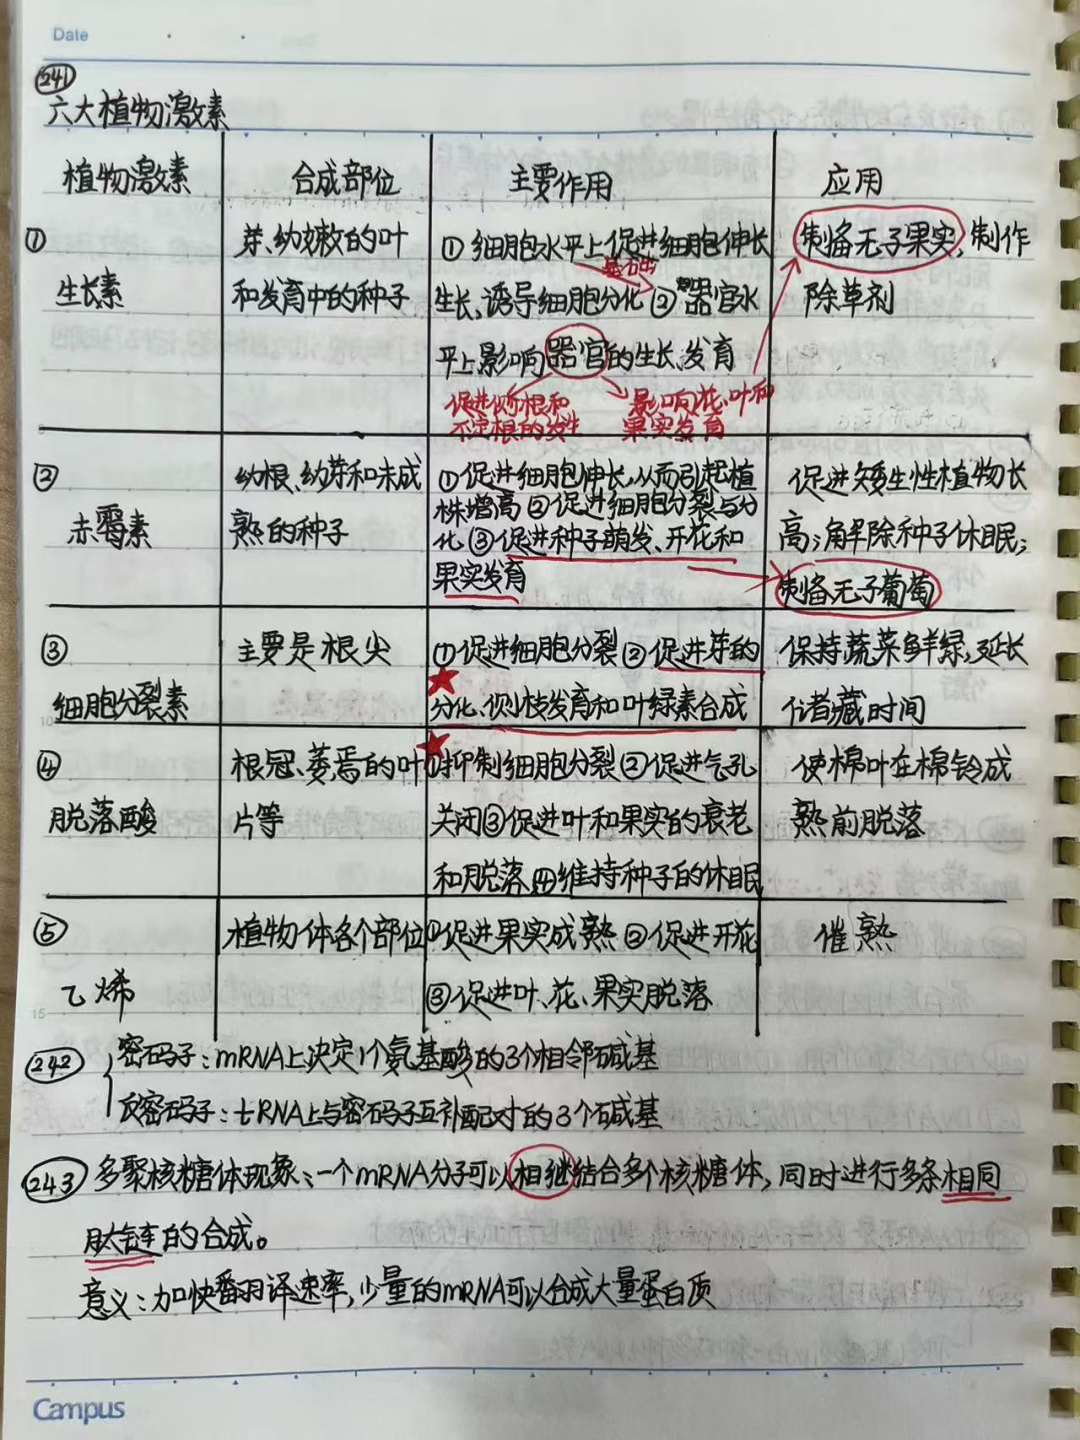 Date
241
六大植物激素
植物激素 合成部位 主要作用 应用
① 生长素
芽、幼嫩的叶
和发育中的种子
①细胞水平上促进细胞伸长
生长、诱导细胞分化②器官水
平上影响器官的生长、发育
促进侧根和
不定根的发生
影响花、叶和
果实发育
制备无子果实;制作
除草剂
② 赤霉素
幼根、幼芽和未成
熟的种子
①促进细胞伸长,从而引起植
株增高②促进细胞分裂与分
化③促进种子萌发、开花和
果实发育
促进矮生性植物长
高;解除种子休眠;
制备无子葡萄
③ 细胞分裂素
主要是根尖
①促进细胞分裂②促进芽的
分化、侧枝发育和叶绿素合成
保持蔬菜鲜绿,延长
储藏时间
④ 脱落酸
根冠、萎蔫的叶
片等
①抑制细胞分裂②促进气孔
关闭③促进叶和果实的衰老
和脱落④维持种子的休眠
使棉叶在棉铃成
熟前脱落
⑤ 乙烯
植物体各个部位
①促进果实成熟②促进开花
③促进叶、花、果实脱落
催熟
242 密码子:mRNA上决定1个氨基酸的3个相邻碱基
反密码子:tRNA上与密码子互补配对的3个碱基
243 多聚核糖体现象:一个mRNA分子可以相继结合多个核糖体,同时进行多条相同
肽链的合成。
意义:加快翻译速率,少量的mRNA可以合成大量蛋白质
10
15
Campus